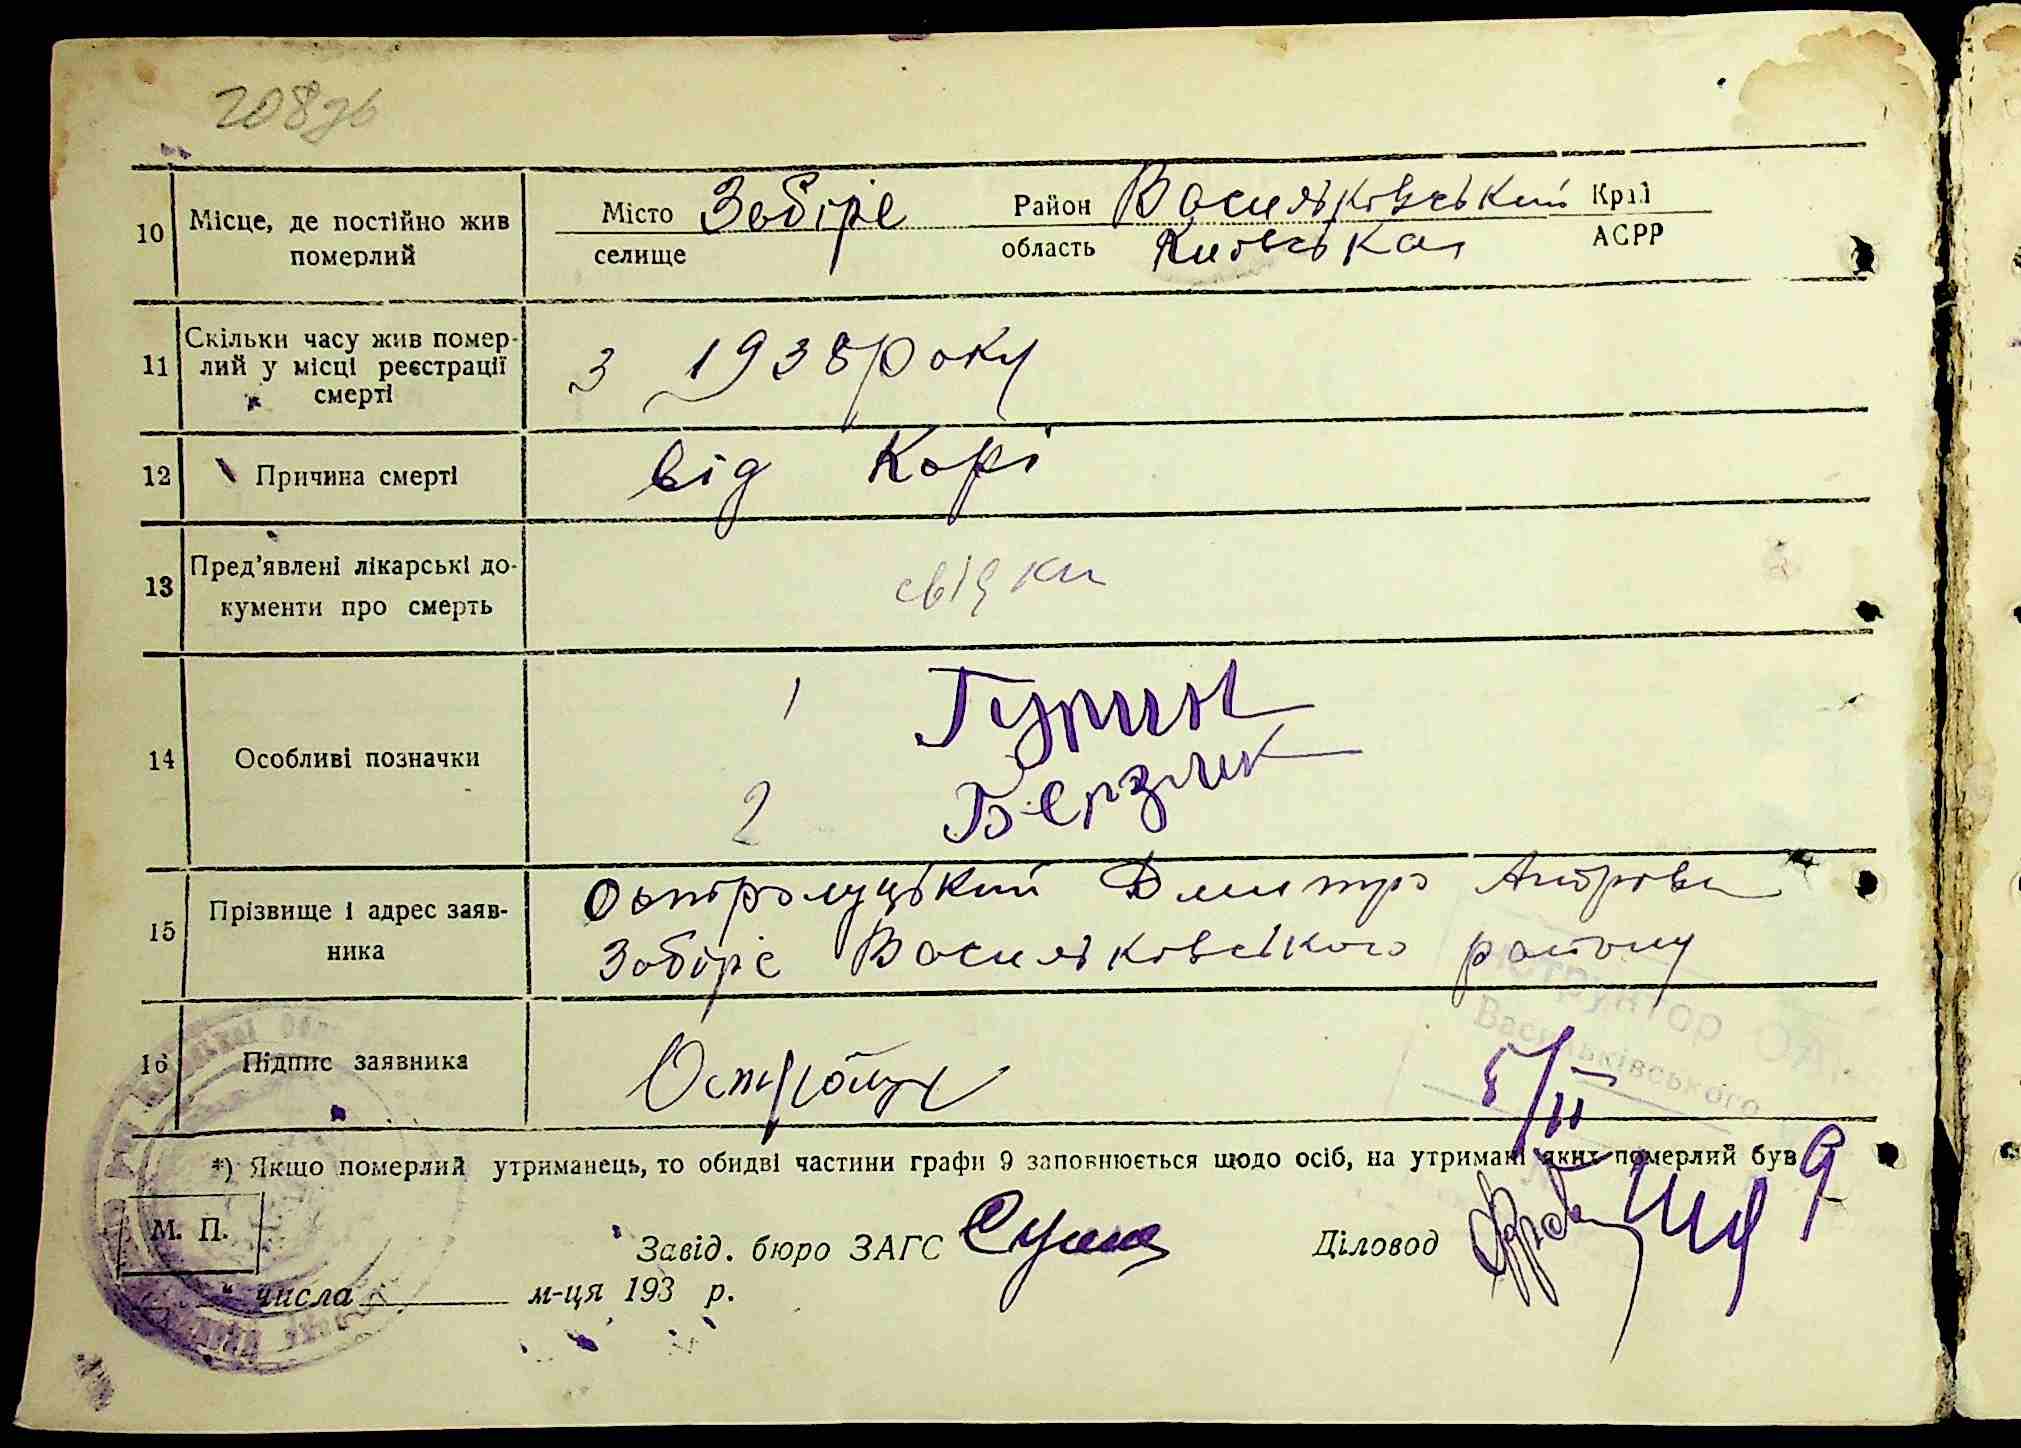 208зв
10 Місце, де постійно жив померлий
Місто Забіре Район Васильковський Край
селище область Київська АСРР
11 Скільки часу жив помер-
лий у місці реєстрації
смерті
з 1938 року
12 Причина смерті від Корі
13 Пред'явлені лікарські до-
кументи про смерть
свідки
14 Особливі позначки
1 Гурин
2 Берзлик
15 Прізвище і адрес заяв-
ника
Остролуцький Дмитро
Забірє Васильковського району
16 Підпис заявника
Інструктор
Васильківського
5/II
*) Якщо померлий утриманець, то обидві частини графи 9 заповнюється щодо осіб, на утримані яких померлий був
М. П.
Завід. бюро ЗАГС Діловод
" числа м-ця 193 р.